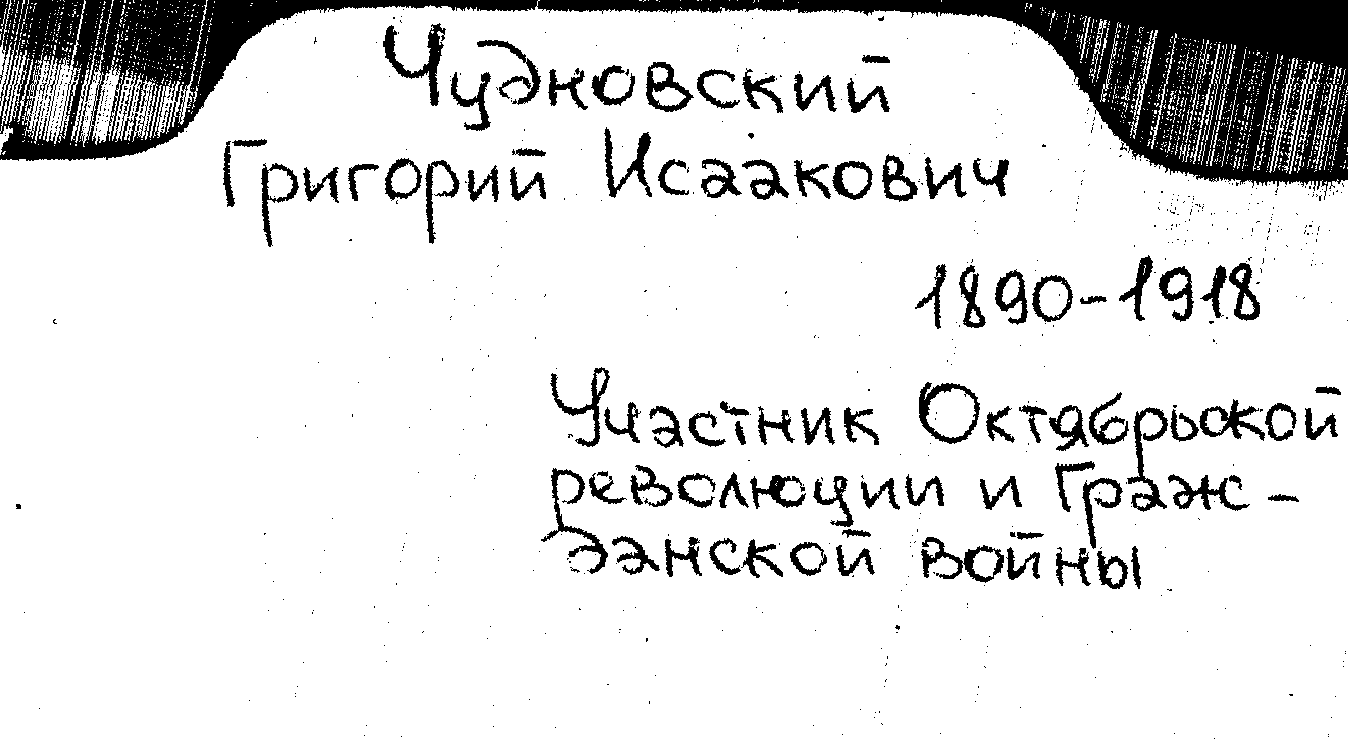 Чудновский
Григорий Исаакович
1890-1918
Участник Октябрьской
революции и Граж-
данской войны